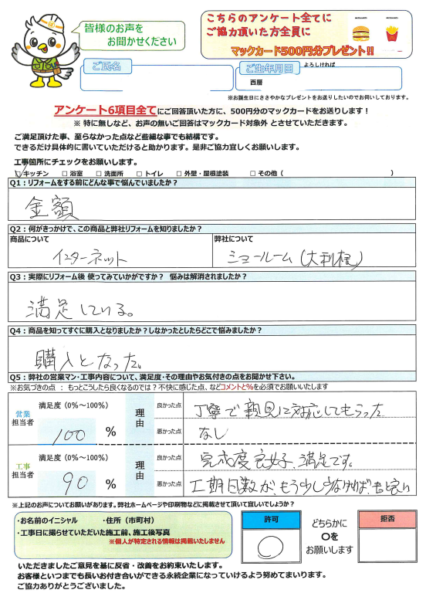 皆様のお声を
お聞かせください
こちらのアンケート全てに
ご協力頂いた方全員に
マックカード500円分プレゼント!!
ご氏名
ご生年月日
よろしければ
西暦
※お誕生日にささやかなプレゼントをお送りしたいのでお伺いしております。
アンケート6項目全てにご回答頂いた方に、500円分のマックカードをお送りします!
※ 特に無しなど、お声の無いご回答はマックカード対象外 とさせていただきます。
ご満足頂けた事、至らなかった点など些細な事でも結構です。
できるだけ具体的に書いていただけると助かります。是非ご協力宜しくお願いします。
工事箇所にチェックをお願いします。
キッチン □ 浴室 □ 洗面所 □ トイレ □ 外壁・屋根塗装 □ その他 ( )
Q1:リフォームをする前にどんな事で悩んでいましたか?
金額
Q2:何がきっかけで、この商品と弊社リフォームを知りましたか?
商品について
弊社について
インターネット
ショールーム(大利根)
Q3:実際にリフォーム後 使ってみていかがですか? 悩みは解消されましたか?
満足している。
Q4:商品を知ってすぐに購入となりましたか?しなかったとしたらどこで悩みましたか?
購入となった。
Q5:弊社の営業マン・工事内容について、満足度・その理由やお気付きの点をお聞かせ下さい。
※お気づきの点 : もっとこうしたら良くなるのでは?不快に感じた点、などコメントと%を必須でお願いいたします
営業
担当者
満足度(0%~100%)
100 %
理由
良かった点
丁寧で親身に対応してもらった
悪かった点
なし
工事
担当者
満足度(0%~100%)
90 %
理由
良かった点
完成度良好、満足です。
悪かった点
工期日数がもう少し少なければ尚良い
※上記のお声についてお願いがあります。弊社ホームページや印刷物などに掲載させて頂いて宜しいでしょうか?
・お名前のイニシャル ・住所(市町村)
・工事日に撮らせていただいた施工前、施工後写真
※個人が特定される情報は掲載いたしません
許可
どちらかに
○を
お願いします
拒否
いただきましたご意見を基に反省・改善をお約束いたします。
お客様といつまでも長いお付き合いができる永続企業になっていけるよう努めてまいります。
ご協力ありがとうございました。